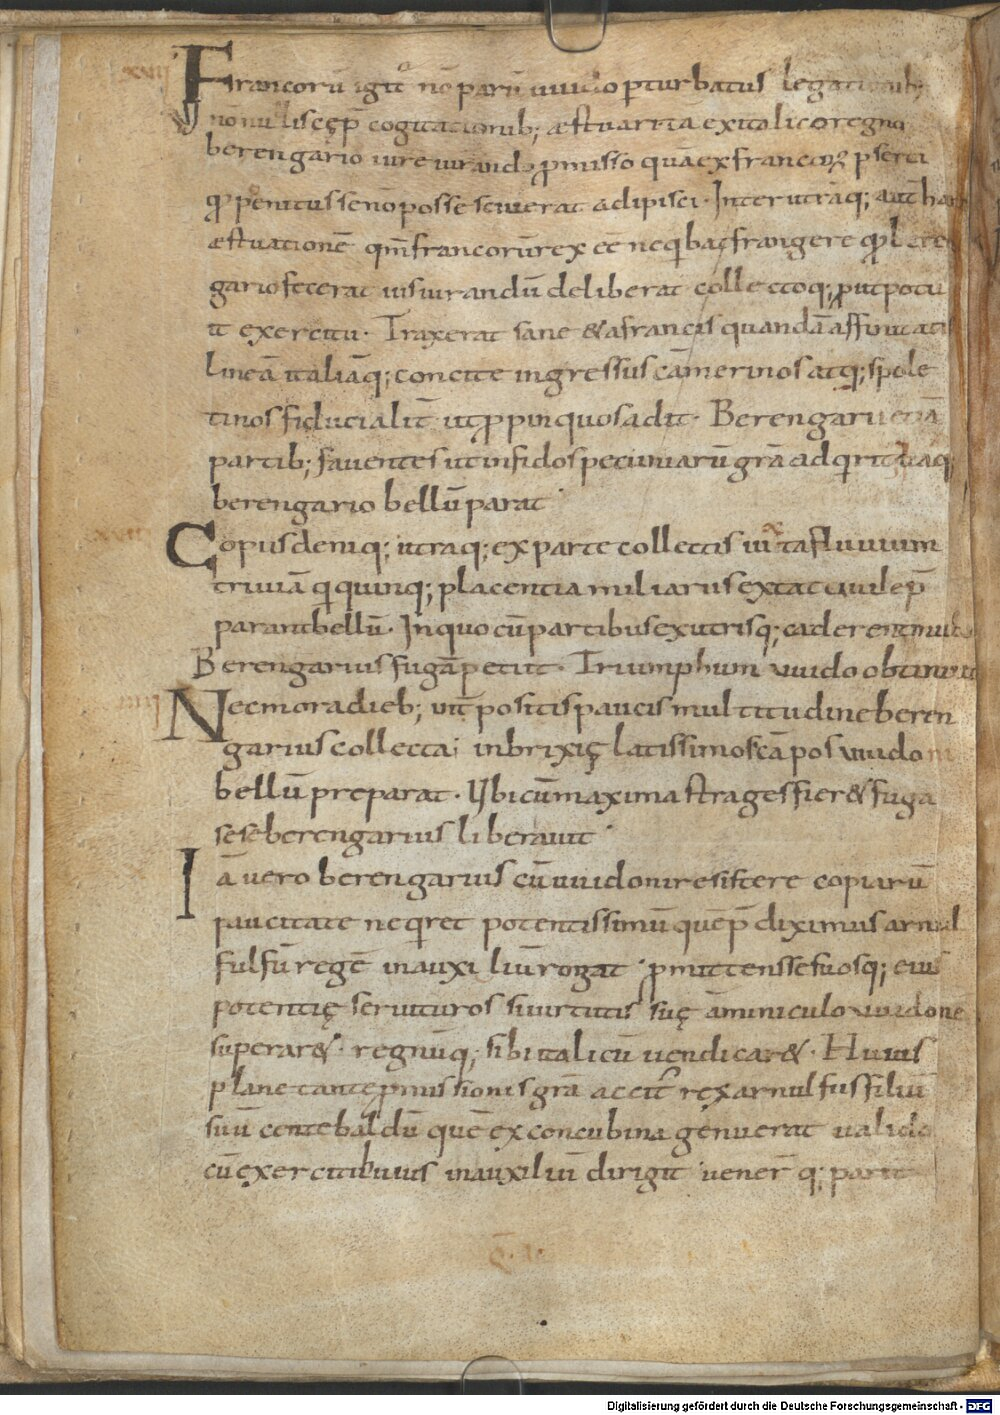 xvii
Francorū igit̄ nō parū vvido pturbatus legationib;
nōnullis cęp cogitationib; æstuari tā ex italico regno
berengario iure iurando pmisso quā ex francorꝝ p serti
qđ penitus se nō posse sciverat adipisci · Inter utrāq; aut̄ hanc
æstuationē qm̄ francorū rex eē neqibat frangere qđ beren
gario fecerat iusiurandū deliberat collectoq; put potu
it exercitu · Traxerat sane & a francis quandā affinitatis
lineā italiāq; concite ingressus camerinos atq; spole
tinos fiducialit̄ ut ppinquos adit · Berengarii etiā
partib; faventes ut infidos pecuniarū grā adqirit
berengario bellū parat ·
Copiis deniq; utraq; ex parte collectis iuxta fluvium
triviā q quinq; placentia miliariis extat civile p
parant bellū · In quo cū partibus ex utrisq; caderent multi
Berengarius fugā petiit · Triumphum vvido obtinuit
Nec mora dieb; vīt positis paucis multitudine beren
garius collecta; in brixię latissimos cāpos vvidoni
bellū preparat · Ubi cū maxima strages fier& fuga
sese berengarius liberavit ·
Iā vero berengarius cū vvidoni resistere copiarū
paucitate neqiret potentissimū quē p diximus arnul
fulfū regē in auxiliū rogat · pmittens se suosq; eius
potentię servituros si virtutis suę āminiculo vvidonē
superar& · regnūq; sibi italicū vendicar& · Huius
plane tantę pmissionis grā accit rex arnulfus filiū
suū centebaldū quē ex concubina genuerat valido
cū exercitu huius in auxiliū dirigit veneruntq; parit
Digitalisierung gefördert durch die Deutsche Forschungsgemeinschaft - DFG